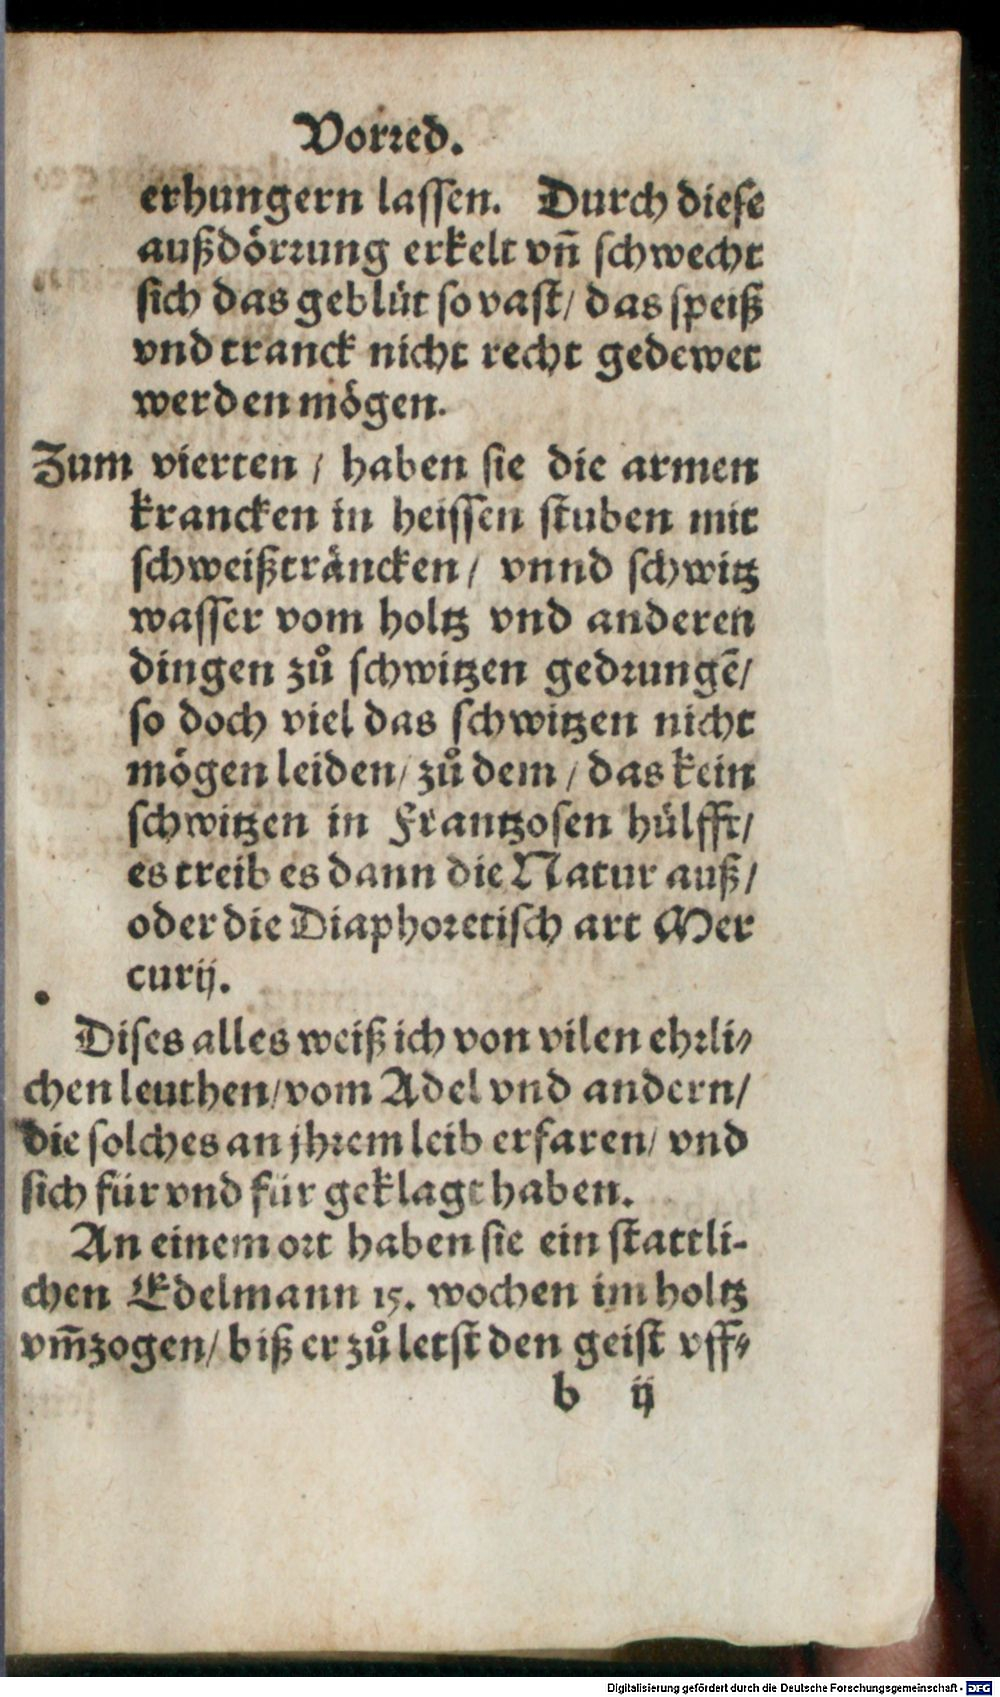 Vorred.
erhungern lassen. Durch diese
außdörrung erkelt vñ schwecht
sich das geblüt so vast/ das speiß
vnd tranck nicht recht gedewet
werden mögen.
Zum vierten / haben sie die armen
krancken in heissen stuben mit
schweißträncken/ vnnd schwitz
wasser vom holtz vnd anderen
dingen zů schwitzen gedrungẽ/
so doch viel das schwitzen nicht
mögen leiden/ zů dem / das kein
schwitzen in Frantzosen hülfft/
es treib es dann die Natur auß/
oder die Diaphoretisch art Mer
curij.
Dises alles weiß ich von vilen ehrli⸗
chen leuthen/ vom Adel vnd andern/
die solches an jhrem leib erfaren/ vnd
sich für vnd für geklagt haben.
An einem ort haben sie ein stattli-
chen Edelmann 15. wochen im holtz
vm̃zogen/ biß er zů letst den geist vff⸗
b ij
Digitalisierung gefördert durch die Deutsche Forschungsgemeinschaft - DFG